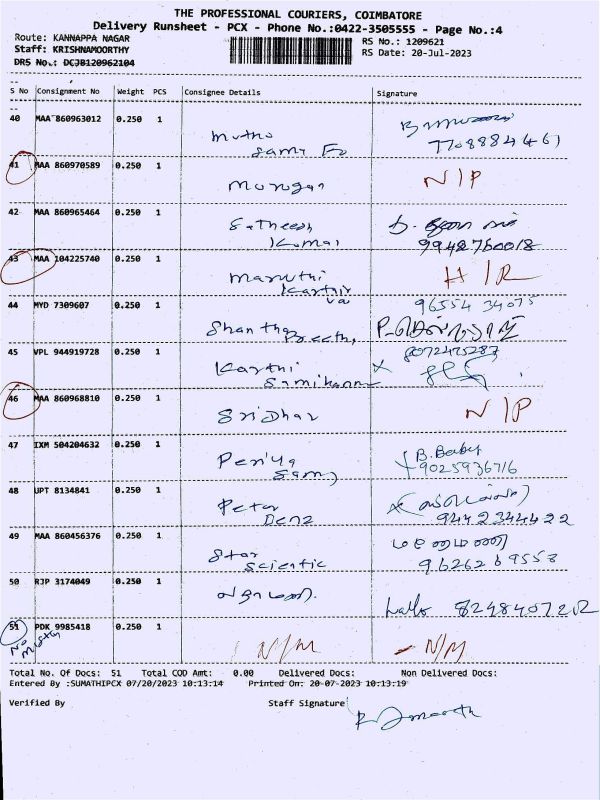 THE PROFESSIONAL COURIERS, COIMBATORE
Delivery Runsheet - PCX - Phone No.:0422-3505555 - Page No.:4
Route: KANNAPPA NAGAR RS No.: 1209621
Staff: KRISHNAMOORTHY RS Date: 20-Jul-2023
DRS No.: DCJB120962104
S No Consignment No Weight PCS Consignee Details Signature
40 MAA 860963012 0.250 1
Muthu
Samy
7708884461
41 MAA 860970589 0.250 1
Murugan N/P
42 MAA 860965464 0.250 1
Satheesh
Kumar 9942760018
43 MAA 104225740 0.250 1
Maruthi H/R
Karthi
96554 34075
44 MYD 7309607 0.250 1
Shantha
Preethi
45 VPL 944919728 0.250 1 8072475287
Karthi
46 MAA 860968810 0.250 1
Sridhar N/P
47 IXM 504204632 0.250 1
Periya B. Baby
Samy 9025936716
48 UPT 8134841 0.250 1
Peter
9442344422
49 MAA 860456376 0.250 1
Star
Scientic 9626269558
50 RJP 3174049 0.250 1
51 PDK 9985418 0.250 1
N/M - N/M
Total No. Of Docs: 51 Total COD Amt: 0.00 Delivered Docs: Non Delivered Docs:
Entered By :SUMATHIPCX 07/20/2023 10:13:14 Printed On: 20-07-2023 10:13:19
Verified By Staff Signature